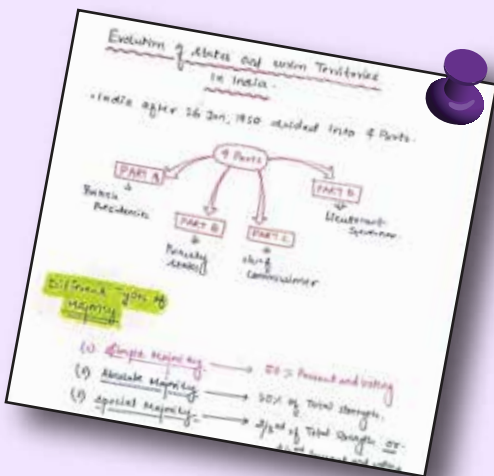 Evolution of states and union Territories
in India.
• India after 26 Jan, 1950 divided into 4 Parts.
4 Parts
PART A
PART B
PART C
PART D
British
Presidencies
Princely
states
chief
commissioner
Lieutenant
Governor
Different Types of
Majority
(1) Simple Majority → 50% Present and voting
(2) Absolute Majority → 50% of Total strength.
(3) Special Majority → 2/3rd of Total Strength or
present and voting